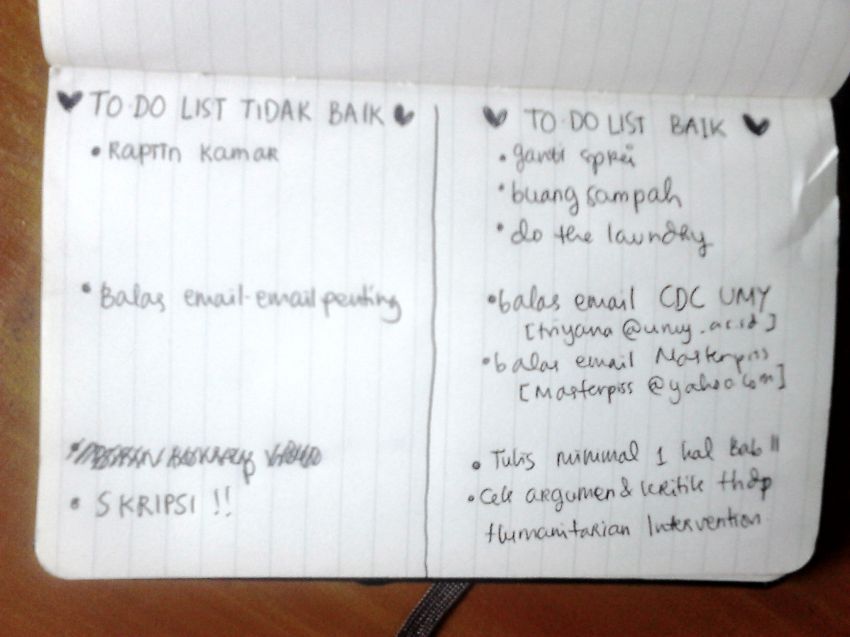 TO·DO LIST TIDAK BAIK
• Rapiin kamar
• Balas email-email penting
• SKRIPSI !!
TO·DO LIST BAIK
• ganti sprei
• buang sampah
• do the laundry
• balas email CDC UMY
[triyana@umy.ac.id]
• balas email Masterpiss
[Masterpiss@yahoo.com]
• Tulis minimal 1 hal Bab II
• Cek argumen & kritik thdp
Humanitarian Intervention